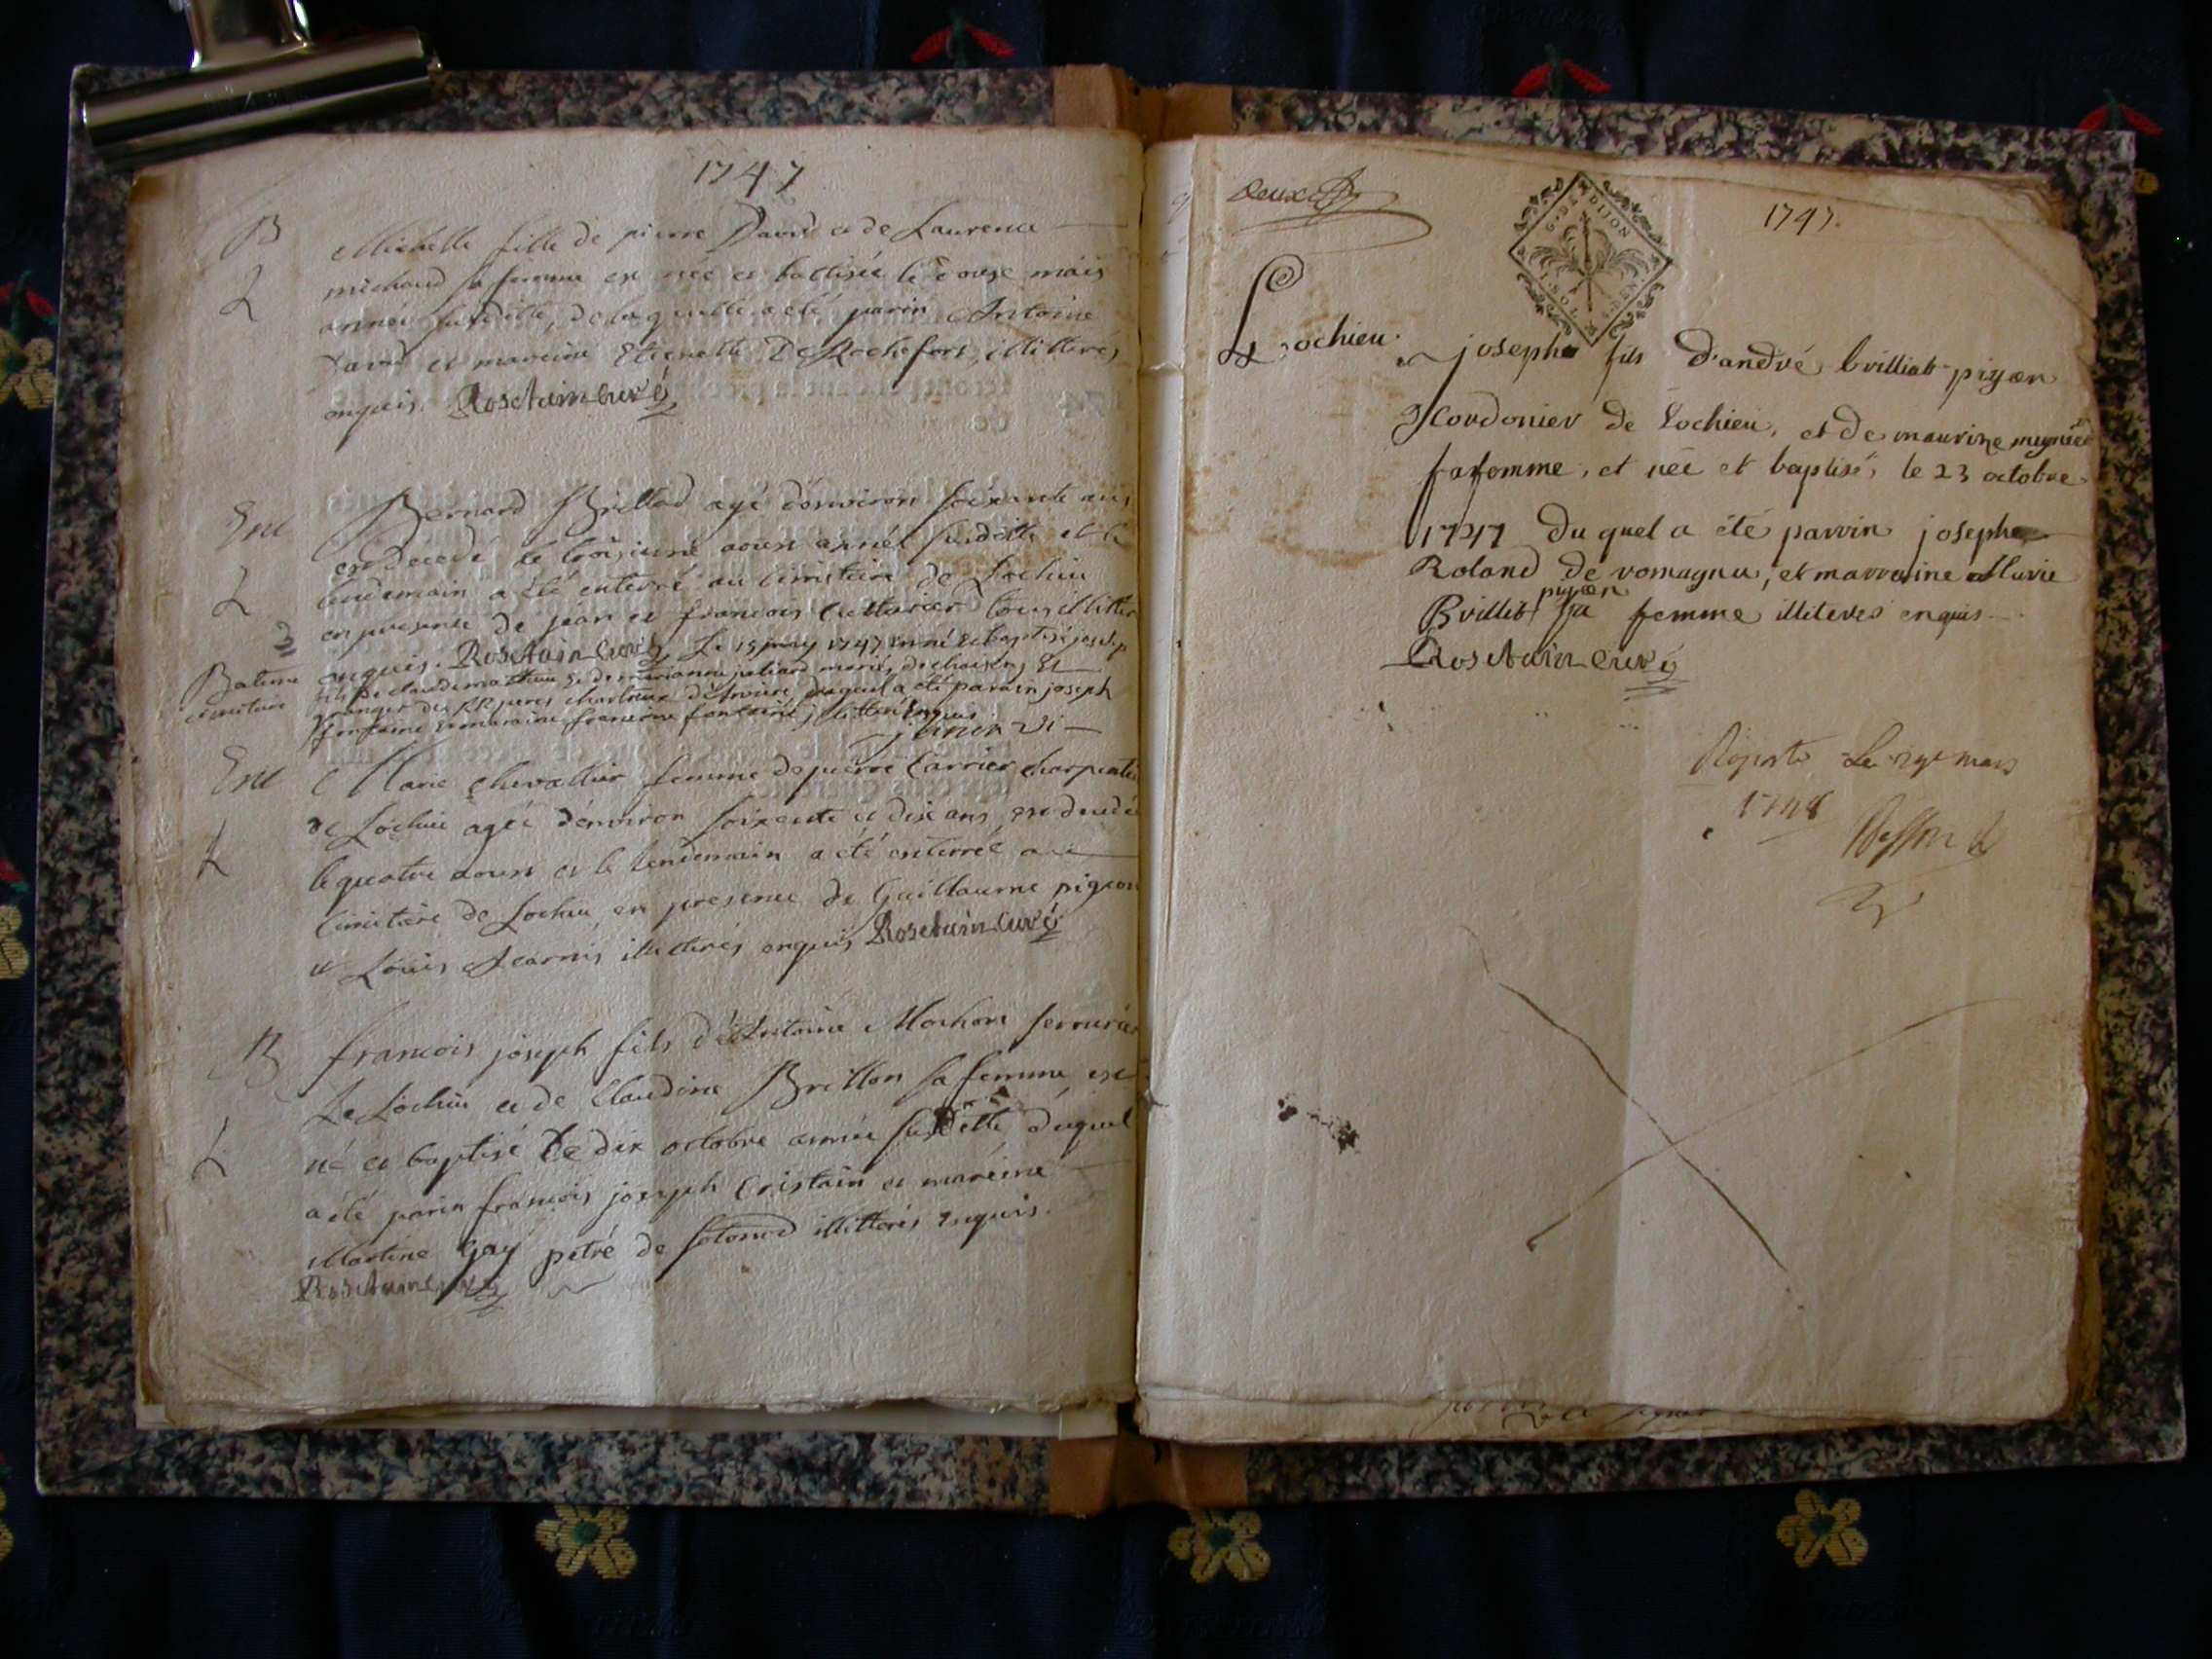 1747
B
Michelle fille de pierre David et de Laurence
michaud sa femme est née et battisée le douse mais
L
année susditte, de laquelle a eté parin Antoine
David et mareine Etiennette De Rochefort, illitterés
enquis. Rosetain curé
Ent
Bernard Brillad agé d'environ soixante ans
est decedé le troisieme aoust année susditte et le
L
lendemain a été enterré au cimitière de Lochieu
en presence de jean et francois Cutturier tous illitter
enquis. Rosetain curé Le 15 may 1747 est né et baptisé josep
Bateme
fils de claude mathieu et de marianne juliard mariés de
granger des RR peres chartreux d'Arviere, duquel a été parain joseph
fontaine et maraine francoise fontaine illitteré enquis
janin vi
Ent
Marie chevallier femme de pierre Carrier charpentie
de Lochieu agée d'environ soixante et dix ans est decedée
L
le quatre aoust et le lendemain a été enterrée au
Cimitière de Lochieu en presence de Guillaume pigeon
et Louis illitterés enquis Rosetain curé
B
francois joseph fils d'Antoine Mochon serrurier
De Lochieu et de Claudine Brillon sa femme est
L
né et baptisé le dix octobre année susditte duquel
a été parin francois joseph Cristain et mareine
Martine Gay petré de sotonod illitterés enquis.
Rosetain curé
deux
G. DE DIJON
1747.
Lochieu.
joseph fils d'andré brilliat-pigeon
Cordonier de Lochieu, et de maurize
sa femme, et née et baptisé, le 23 octobre
1747 du quel a été parrin joseph
Roland de vomagnu, et marraine Marie
pigeon
Brillat sa femme illiteres enquis
Rosetain curé
mars
1748